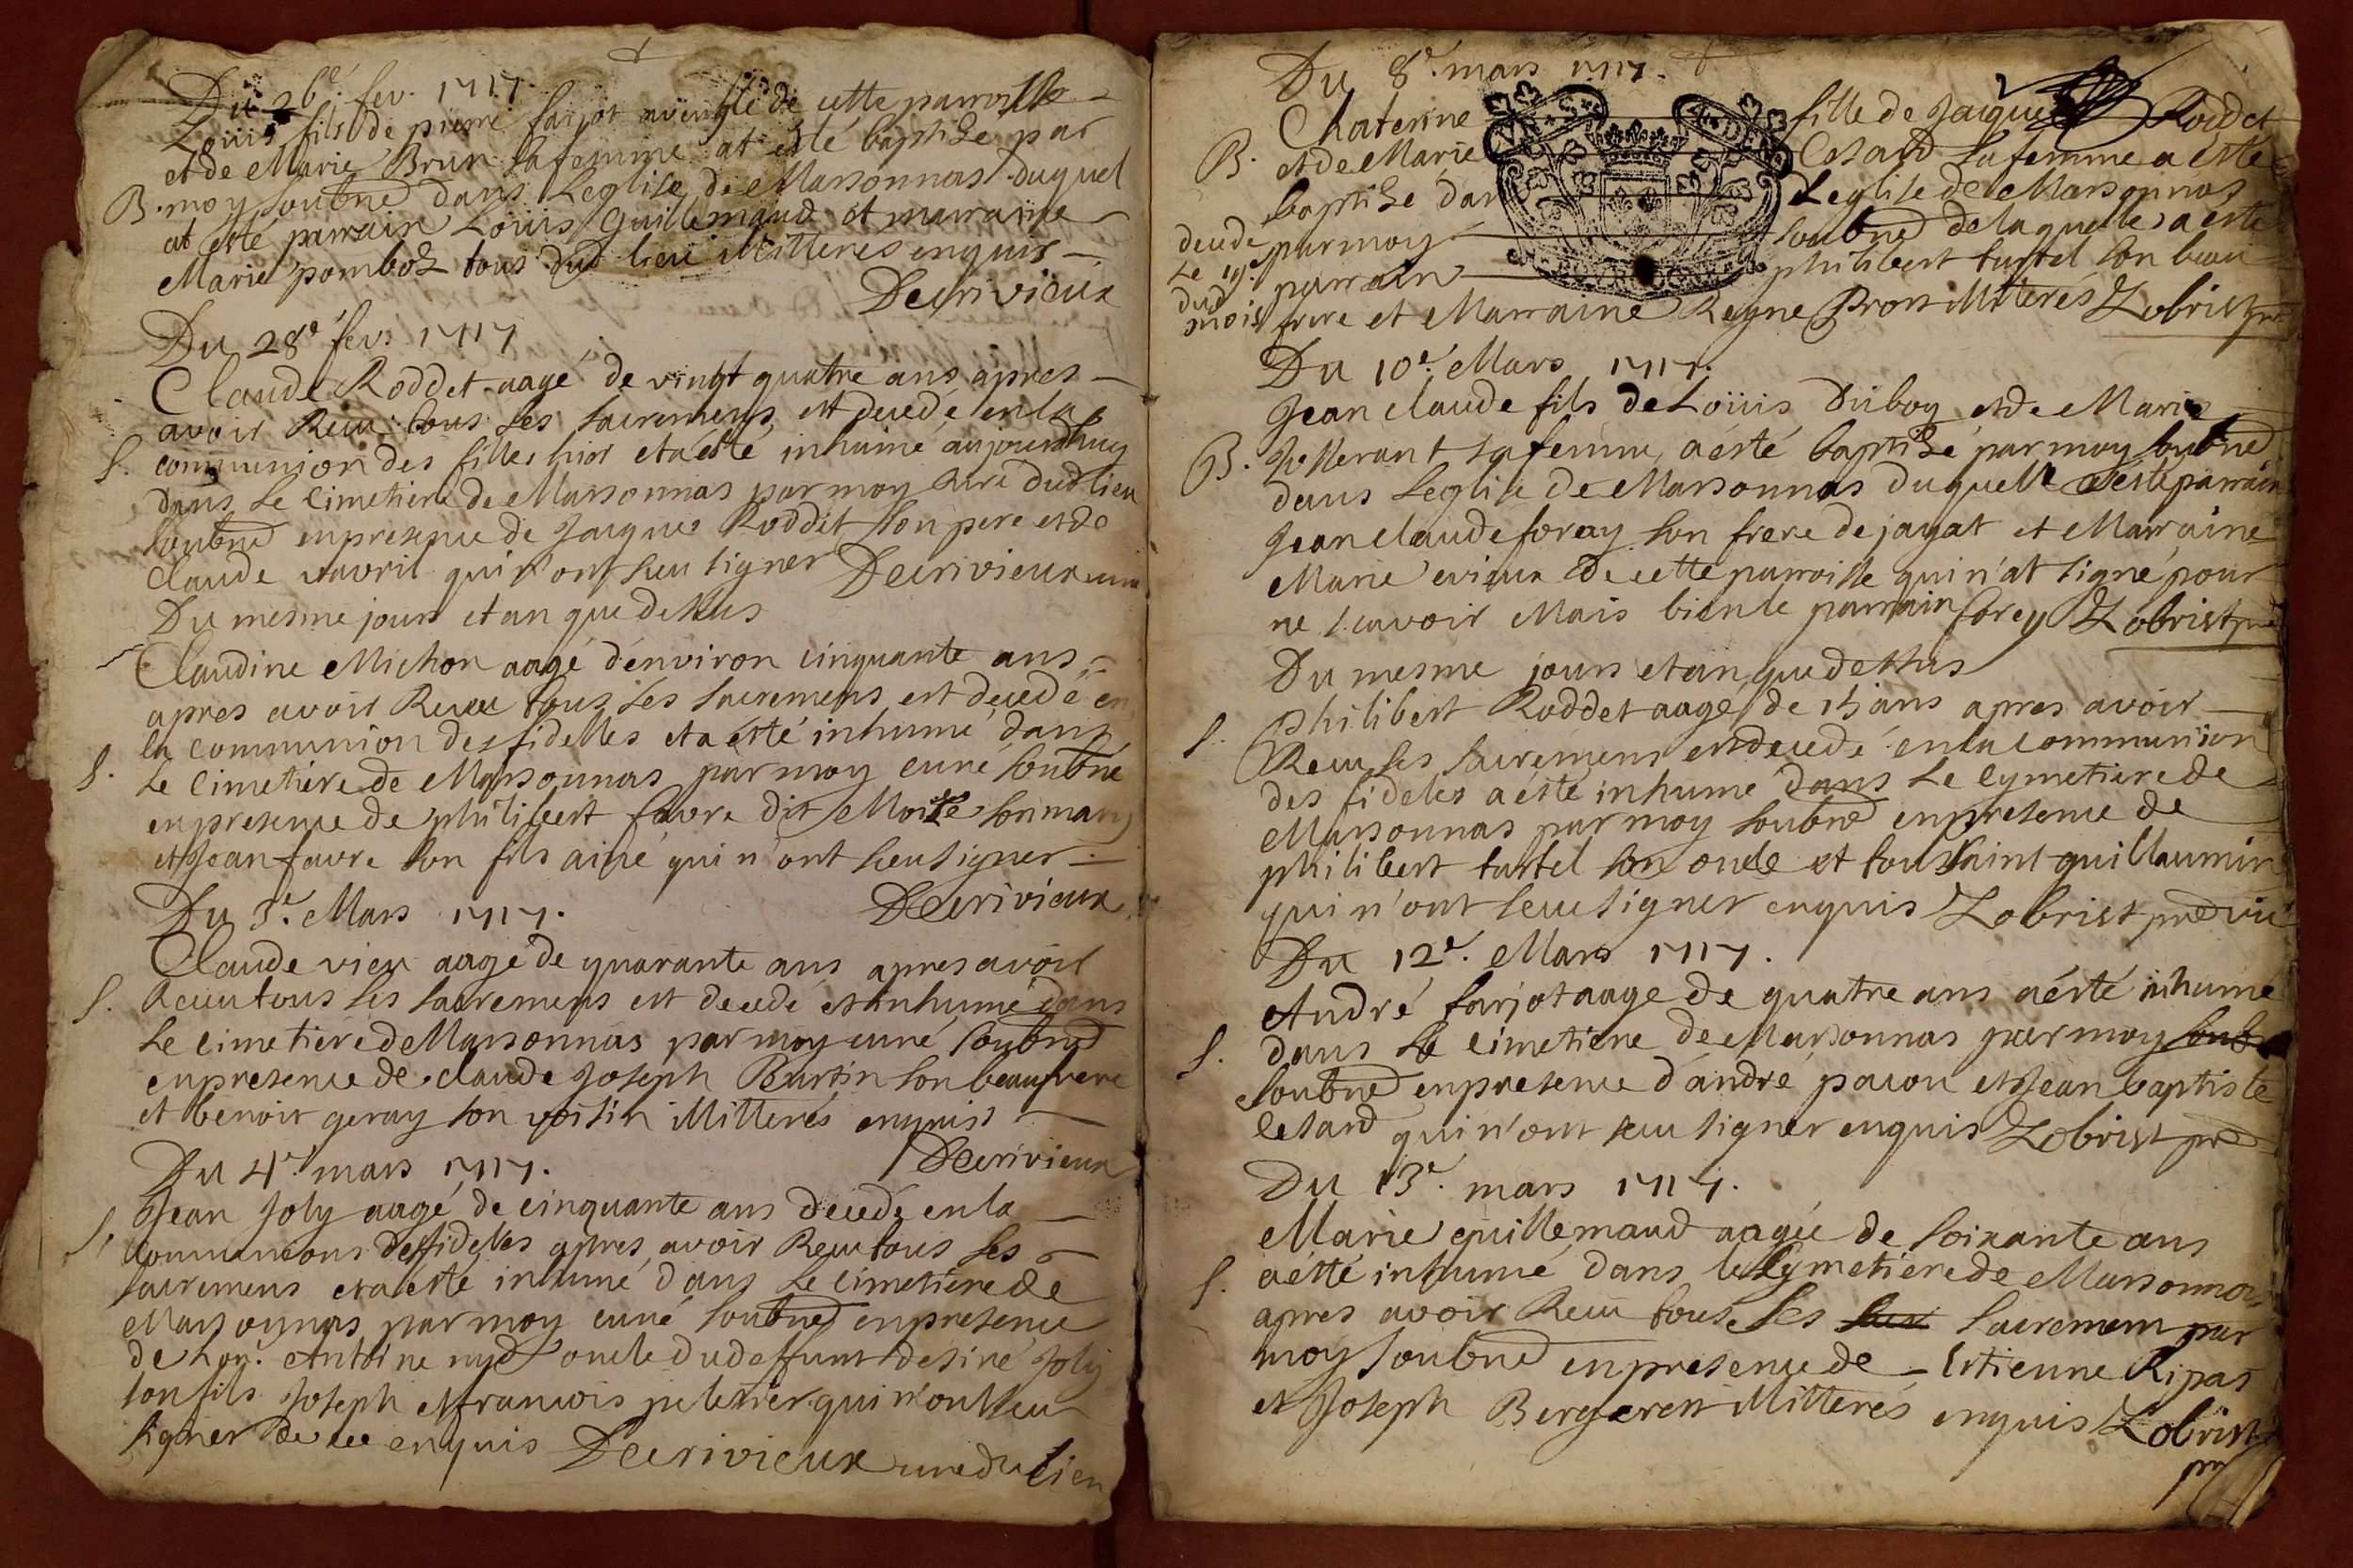 Du 26e. fev. 1717.
Loüis fils de pierre farjot aveugle de cette parroisse
et de Marie Brun sa femme at esté baptisé par
B. moy soubné dans Leglise de Marsonnas duquel
at esté parrain Loüis Guillemaud et marraine
Marie pomboz tous dud lieu illitterés enquis
Decrivieux
Du 28e fev. 1717
Claude Roddet aagé de vingt quatre ans apres
avoir Receu tous les sacremens est decedé en la
S. communion des filles hier et a esté inhumé aujourdhuy
dans le cimetiere de Marsonnas par moy curé dud lieu
soubné en presence de Jacques Roddet son pere et de
Claude avril qui n'ont sceu signer Decrivieux curé
Du mesme jours et an que dessus
Claudine Michon aagé d'environ cinquante ans
apres avoir Receu tous les sacremens est decedé en
la communion des fidelles et a esté inhumé dans
S. le cimetiere de Marsonnas par moy curé soubné
en presence de philibert favre dit Moïse son mary
et Jean favre son fils ainé qui n'ont sceu signer
Decrivieux
Du 3e. Mars 1717.
Claude vieu aagé de quarante ans apres avoir
S. Receu tous les sacremens est decedé et inhumé dans
le cimetiere de Marsonnas par moy curé soubné
en presence de claude Joseph Burtin son beaufrere
et benoit geray son voisin illitterés enquis
Decrivieux
Du 4e. mars 1717.
Jean Joly aagé de cinquante ans decedé en la
S. communions des fidelles apres avoir Receu tous les
sacremens et a esté inhumé dans le cimetiere de
Marsonnas par moy curé soubné en presence
de hon. Antoine nyd oncle du deffunt desiré Joly
son fils Joseph et francois peletier qui n'ont sceu
signer de ce enquis Decrivieux curé du lieu
Du 8e. mars 1717.
Chaterine fille de Jaique Roddet
B. et de Marie Cosard sa femme a esté
baptisé dans Leglise de Marsonnas
par moy soubné de laquelle a esté
parrain philibert turtel son beau
frere et Marraine Reyne Bron illitterés Zobrist pre
decedé
le 19e
dud
mois
Du 10e. Mars 1717.
Jean claude fils de Loüis Duboy et de Marie
B. sa femme, a esté baptisé par moy soubné
dans Leglise de Marsonnas duquel a esté parrain
Jean claude foray son frere de jayat et Marraine
Marie vieux de cette parroisse qui n'at signé pour
ne scavoir Mais bien le parrain forey Zobrist pre
Du mesme jours et an que dessus
S. Philibert Roddet aagé de 15 ans apres avoir
Receu les sacremens est decedé en la communion
des fideles a esté inhumé dans le cymetiere de
Marsonnas par moy soubné en presence de
philibert turtel son oncle et toussaint guillaumin
qui n'ont sceu signer enquis Zobrist pre vic
Du 12e. Mars 1717.
André farjot aagé de quatre ans a esté inhumé
S. dans le cimetiere de Marsonnas par moy soub
soubné en presence d'andré pacon et Jean baptiste
lesard qui n'ont sceu signer enquis Zobrist pre
Du 13e. mars 1717.
Marie guillemaud aagée de soixante ans
S. a esté inhumé dans le cymetiere de Marsonnas
apres avoir Receu tous les sacremens par
moy soubné en presence de Estienne Ripas
et Joseph Bergeret illitterés enquis Zobrist
pre